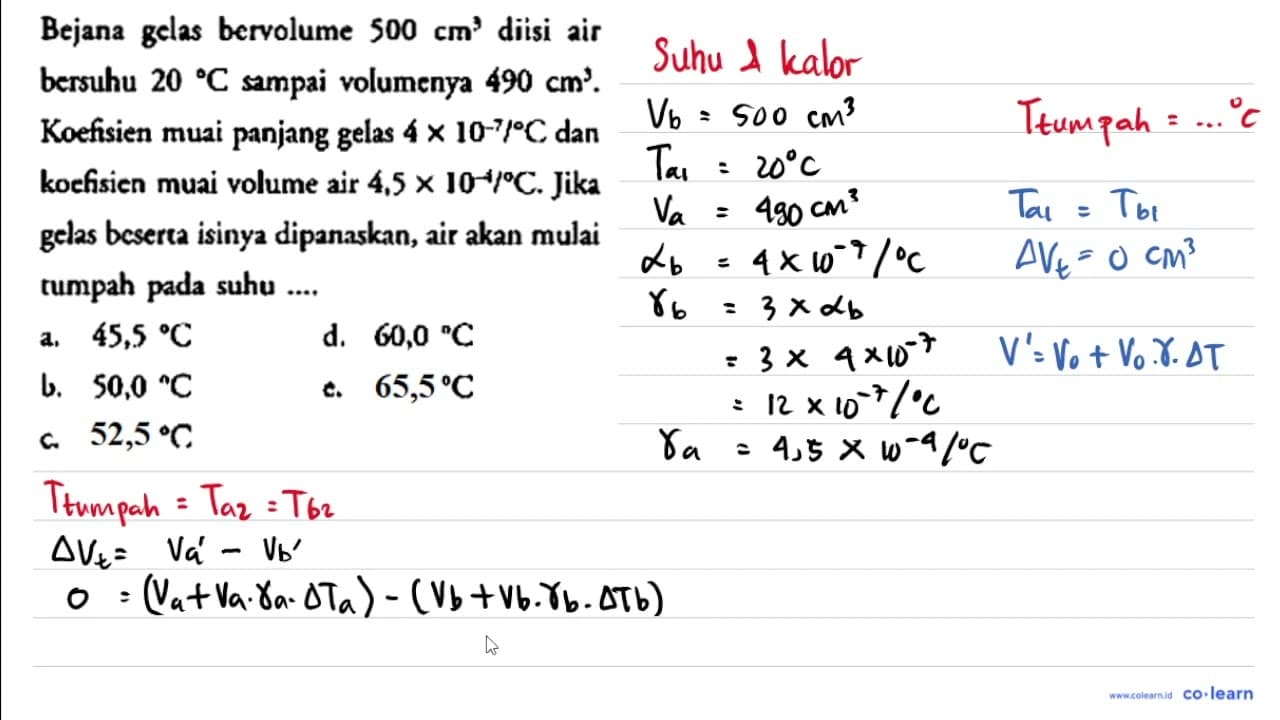 Bejana gelas bervolume 500 cm³ diisi air
bersuhu 20 °C sampai volumenya 490 cm³.
Koefisien muai panjang gelas 4 × 10⁻⁷/°C dan
koefisien muai volume air 4,5 × 10⁻⁴/°C. Jika
gelas beserta isinya dipanaskan, air akan mulai
tumpah pada suhu ....
a. 45,5 °C
b. 50,0 °C
c. 52,5 °C
d. 60,0 °C
e. 65,5 °C
Suhu & kalor
Vb = 500 cm³
Ta1 = 20°C
Va = 490 cm³
αb = 4 × 10⁻⁷/°C
γb = 3 × αb
= 3 × 4 × 10⁻⁷
= 12 × 10⁻⁷/°C
γa = 4,5 × 10⁻⁴/°C
Ttumpah = ... °C
Ta1 = Tb1
ΔVt = 0 cm³
V' = V₀ + V₀.γ.ΔT
Ttumpah = Ta2 = Tb2
ΔVt = Va' - Vb'
0 = (Va + Va.γa.ΔTa) - (Vb + Vb.γb.ΔTb)
www.colearn.id co·learn